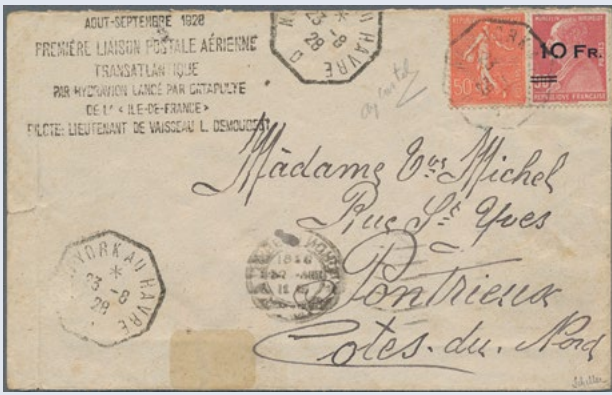 AOUT-SEPTEMBRE 1928
PREMIÈRE LIAISON POSTALE AÉRIENNE
TRANSATLANTIQUE
PAR HYDRAVION LANCÉ PAR CATAPULTE
DE L'« ILE-DE-FRANCE»
PILOTE: LIEUTENANT DE VAISSEAU L. DEMOUGEOT
AU HAVRE
23 -8
28
50c
10 FR.
REPUBLIQUE FRANÇAISE
Madame Vve Michel
Rue St Yves
Pontrieux
Côtes-du-Nord
YORK AU HAVRE
23 -8
28